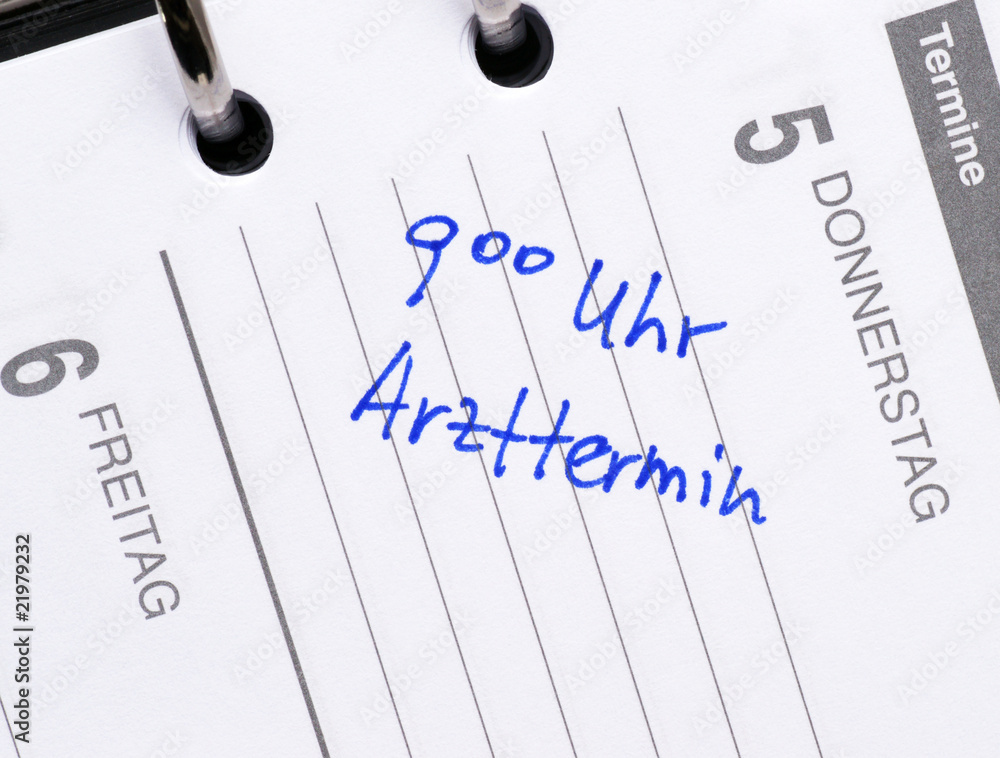 Termine
5 DONNERSTAG
900 Uhr
Arzttermin
6 FREITAG
Adobe Stock | #21979232